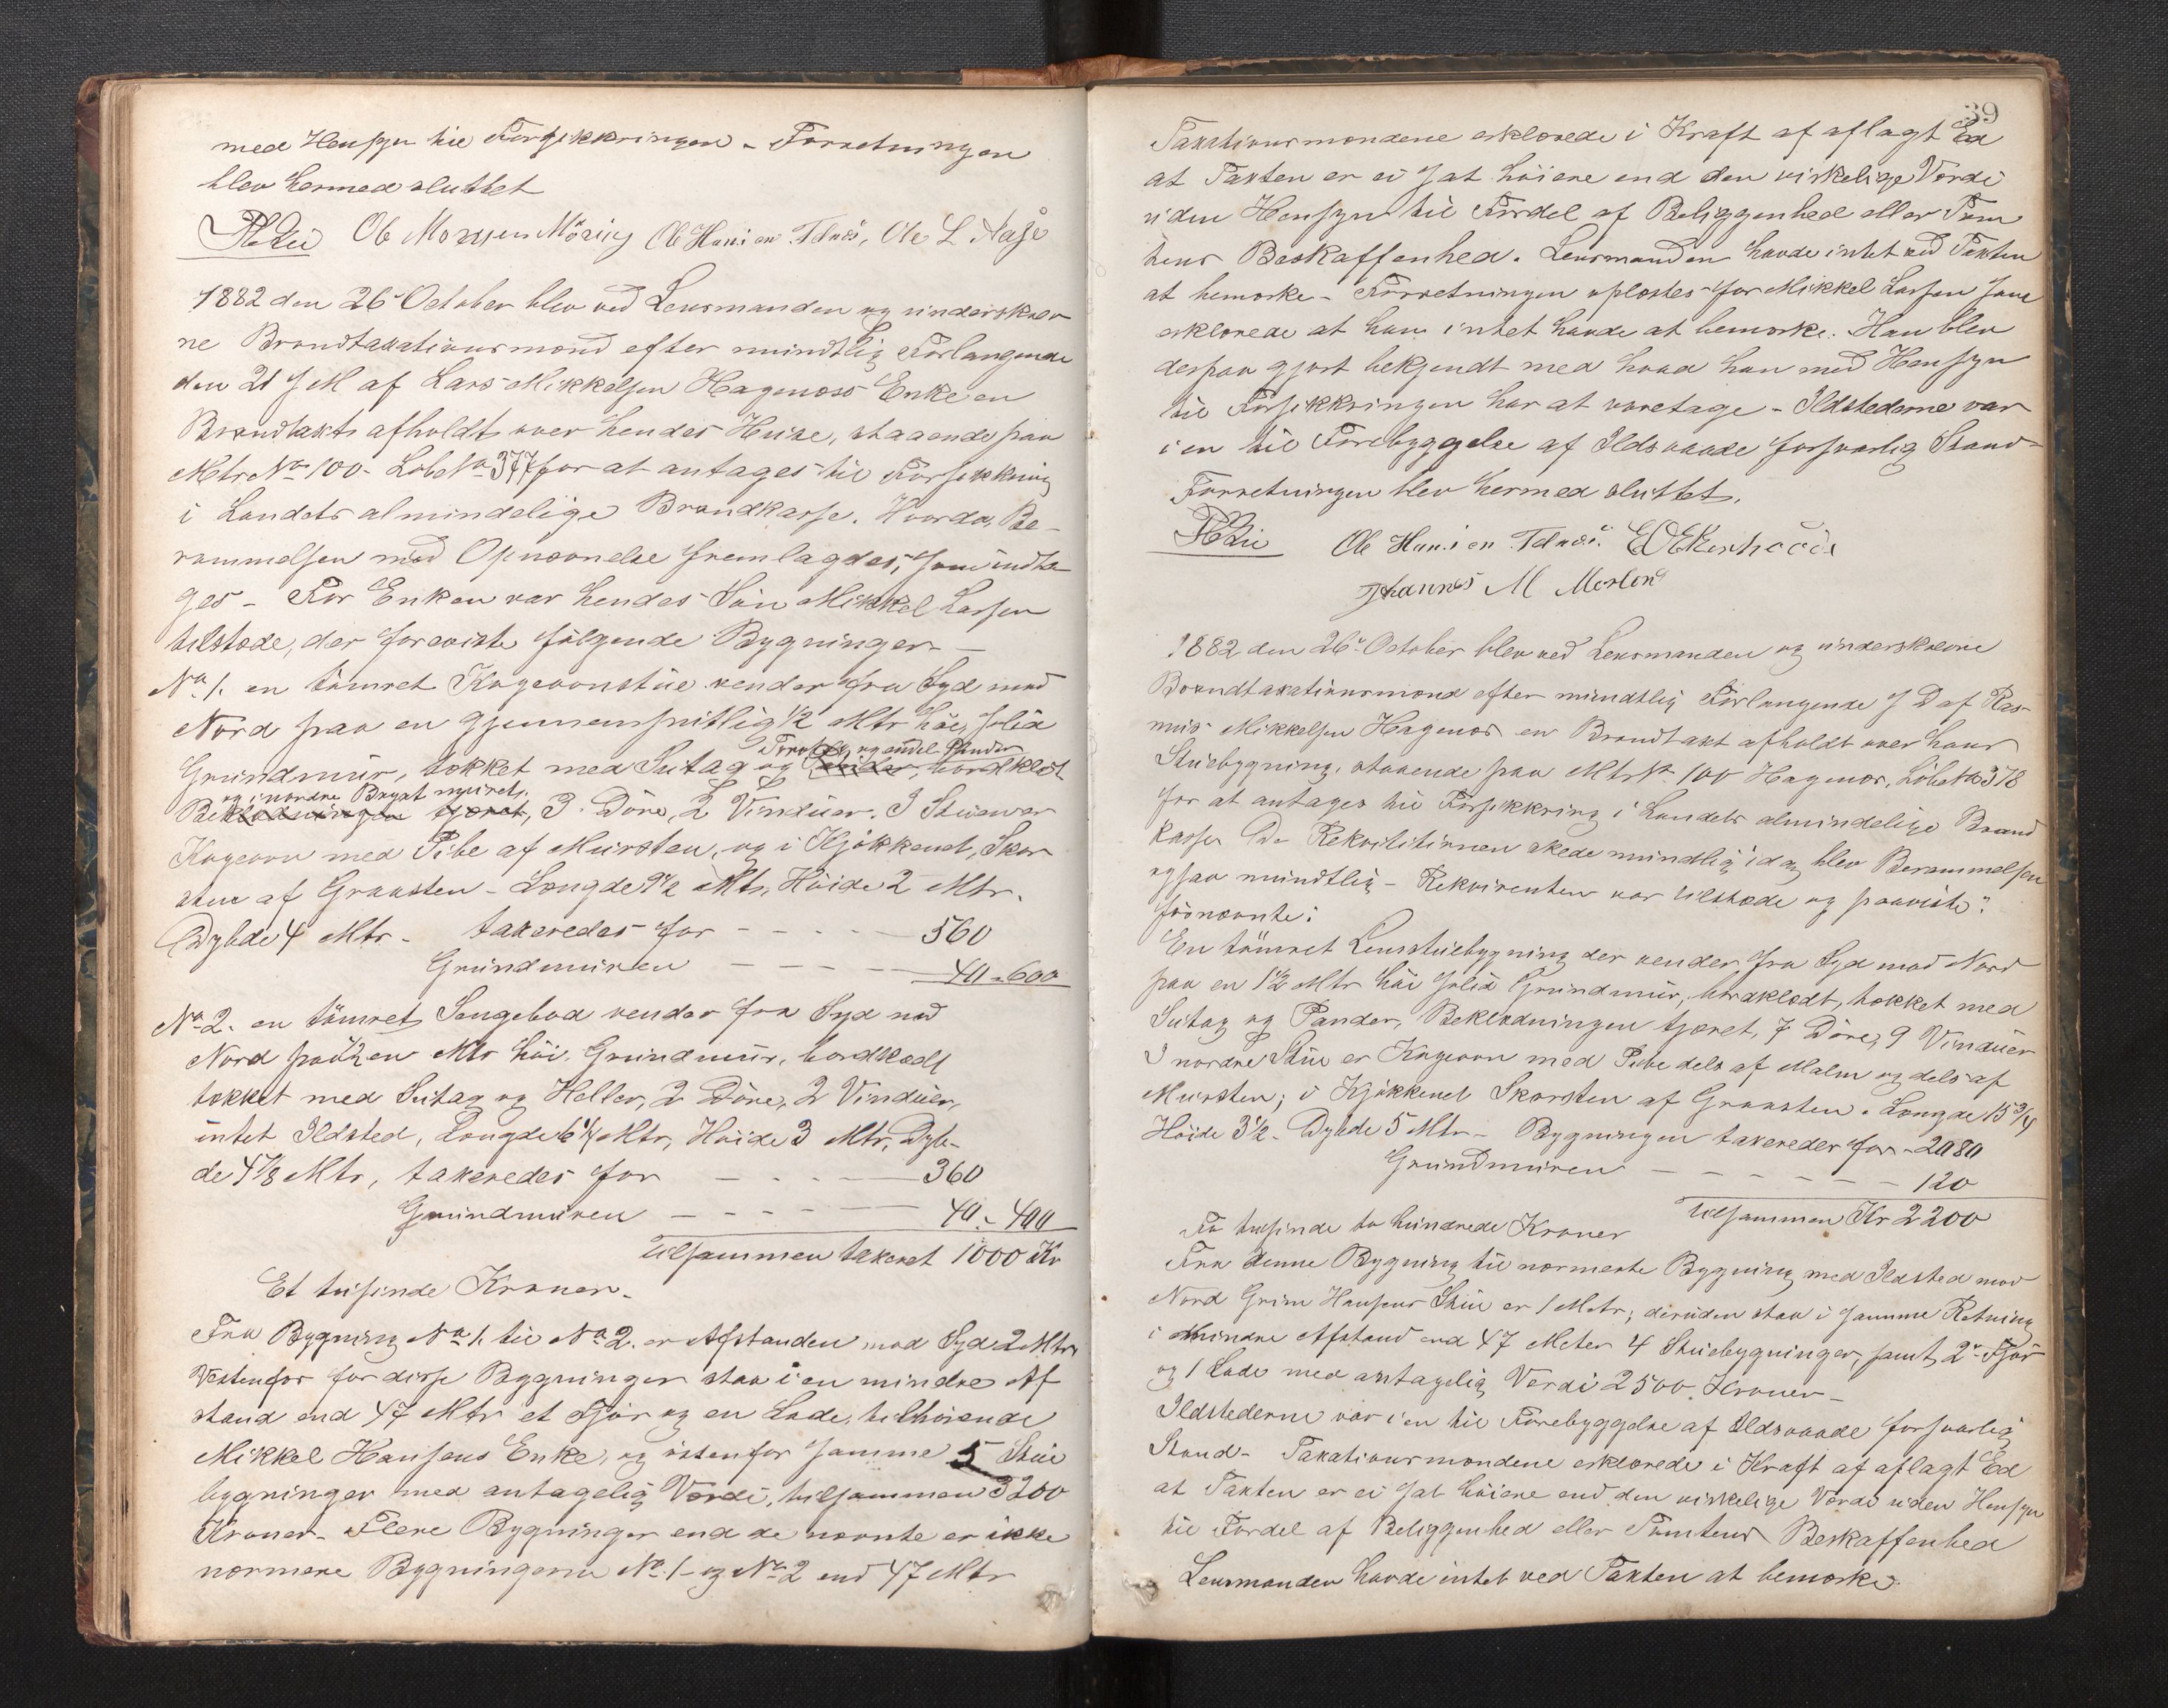 med Hensyn til Forsikkringen - Forretningen
blev hermed sluttet
Ole Monsen Ole Hansen Ole L
1882 den 26de October blev ved Lensmanden og underskrev
ne Brandtaxationsmænd efter mundtlig Forlangende
den 21 d M af Lars Mikkelsen Hagenæs Enke en
Brandtaxt afholdt over hendes Huse, staaende paa
Mtr No 100. Løbe No 377 for at antages til Forsikkring
i Landets almindelige Brandkasse. Hvorda Be-
rammelsen med Opnævnelse fremlagdes, som indta
ges - For Enken var hendes Søn Mikkel Larsen
tilstede, der foreviste følgende Bygninger -
No 1. en tømret Kogeovnstue vender fra Syd mod
Nord paa en gjennemsnitlig 1/2 Mtr høi, solid
Torvtag og endel Pander
Grundmur, tækket med Sutag og bordklæd
og i nordre nymuret
Beklædningen tjæret, 3 Døre, 2 Vinduer. I Stuen er
Kogeovn med Pibe af Mursten, og i Kjøkkenet, Skor
sten af Graasten - Længde 9 1/2 Mtr, Høide 2 Mtr.
Dybde 4 Mtr - taxeredes for - - - - 560
Grundmuren - - - - 40 - 600
No 2. en tømret Sengebod vender fra Syd mod
Nord paa 1/2 en Mtr høi Grundmur, bordklædt
tækket med Sutag og Heller, 2 Døre, 2 Vinduer,
intet Ildsted, Længde 6 1/4 Mtr, Høide 3 Mtr, Dyb-
de 4 7/8 Mtr, taxeredes for - - - - 360
Grundmuren - - - - 40 - 400
tilsammen taxeret 1000 Kr
Et tusinde Kroner.
Fra Bygning No 1. til No 2. er Afstanden mod Syd 2 Mtr.
Vestenfor for disse Bygninger staa i en mindre Af
stand end 47 Mtr et Fjøs og en Lade, tilhørende
Mikkel Hansens Enke, og østenfor samme 5 Stue
bygninger med antagelig Værdi, tilsammen 3200
Kroner. Flere Bygninger end de nævnte er ikke
nærmere Bygningerne No 1 og No 2 end 47 Mtr
39
Taxationsmændene erklærede i Kraft af aflagt Ed
at Taxten er ei sat høiere end den virkelige Værdi
uden Hensyn til Fordel af Beliggenhed eller Tom
tens Beskaffenhed. Lensmanden havde intet ved Taxten
at bemærke - Forretningen oplæstes for Mikkel Larsen som
erklærede at han intet havde at bemærke. Han blev
derpaa gjort bekjendt med hvad han med Hensyn
til Forsikkringen har at varetage - Ildstederne var
i en til Forebyggelse af Ildsvaade forsvarlig Stand -
Forretningen blev hermed sluttet.
Ole Hansen
Johannes M
1882 den 26de October blev ved Lensmanden og underskrevne
Brandtaxationsmænd efter mundtlig Forlangende s D af Ras-
mus Mikkelsen Hagenæs en Brandtaxt afholdt over hans
Stuebygning, staaende paa Mtr No 100 Hagenæs, Løbe No 378
for at antages til Forsikkring i Landets almindelige Brand
kasse. Da Rekvisitionen skede mundtlig idag blev Berammelsen
ogsaa mundtlig - Rekvirenten var tilstede og paaviste
følgende:
En tømret Lensstuebygning der vender fra Syd mod Nord
paa en 1 1/2 Mtr høi solid Grundmur, bordklædt, tækket med
Sutag og Pander, Beklædningen tjæret, 7 Døre, 9 Vinduer
I nordre Stue er Kogeovn med Pibe dels af Malm og dels af
Mursten; i Kjøkkenet Skorsten af Graasten. Længde 15 3/4
Høide 3 1/2 - Dybde 5 Mtr - Bygningen taxeredes for - 2080
Grundmuren - - - - - 120
tilsammen Kr 2200
To tusinde to hundrede Kroner
Fra denne Bygning til nærmeste Bygning med Ildsted mod
Nord Grim Hansens Stue er 1 Metr; desuden staa i samme Retning
i mindre Afstand end 47 Meter 4 Stuebygninger, samt 2de Fjøs
og 1 Lade med antagelig Værdi 2500 Kroner -
Ildstederne var i en til Forebyggelse af Ildsvaade forsvarlig
Stand - Taxationsmændene erklærede i Kraft af aflagt Ed
at Taxten er ei sat høiere end den virkelige Værdi uden Hensyn
til Fordel af Beliggenhed eller Tomtens Beskaffenhed
Lensmanden havde intet ved Taxten at bemærke.